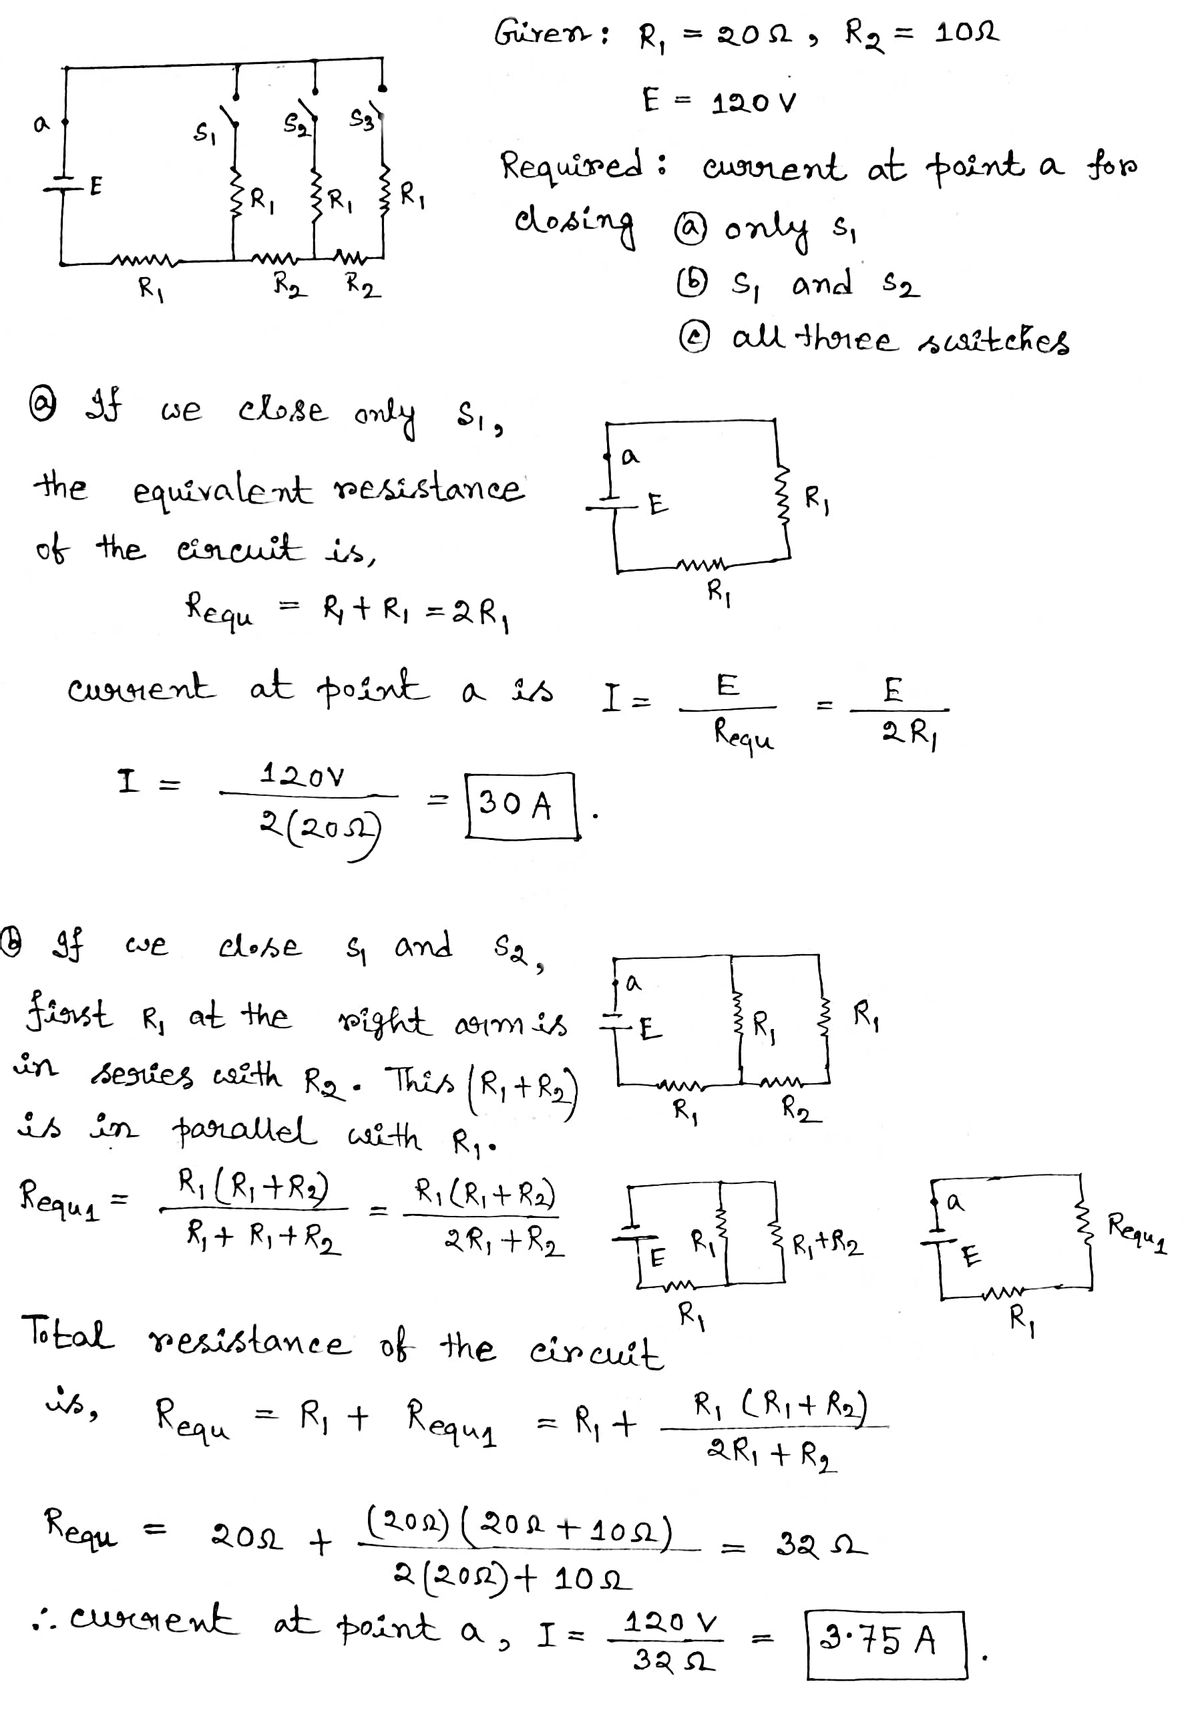 Given : R₁ = 20Ω , R₂ = 10Ω
E = 120 V
a
S₁ S₂ S₃
E
R₁ R₁ R₁
R₁ R₂ R₂
Required : current at point a for
closing ⓐ only S₁
ⓑ S₁ and S₂
ⓒ all three switches
ⓐ If we close only S₁,
the equivalent resistance
of the circuit is,
Requ = R₁ + R₁ = 2R₁
a
E
R₁
R₁
current at point a is I = E / Requ = E / 2R₁
I = 120V / 2(20Ω) = 30 A .
ⓑ If we close S₁ and S₂,
first R₁ at the right arm is
in series with R₂. This (R₁ + R₂)
is in parallel with R₁.
a
E R₁ R₁
R₁ R₂
Requ1 = R₁(R₁ + R₂) / R₁ + R₁ + R₂ = R₁(R₁ + R₂) / 2R₁ + R₂
E R₁ R₁+R₂
R₁
a
E Requ1
R₁
Total resistance of the circuit
is, Requ = R₁ + Requ1 = R₁ + R₁ (R₁ + R₂) / 2R₁ + R₂
Requ = 20Ω + (20Ω)(20Ω + 10Ω) / 2(20Ω) + 10Ω = 32 Ω
∴ current at point a, I = 120 V / 32 Ω = 3.75 A .